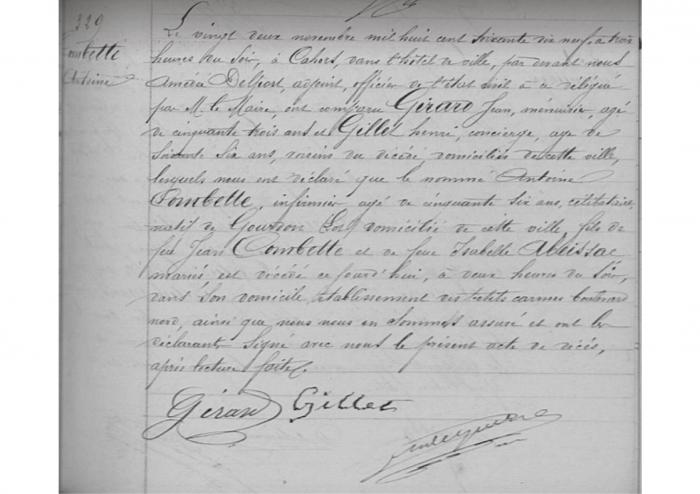 329
Combette
Antoine
Le vingt deux novembre mil huit cent soixante dix neuf, à trois
heures du soir, à Cahors, dans l'hôtel de ville, par devant nous
Amédée Delfort, adjoint, officier de l'état civil à ce délégué
par M. le Maire, ont comparu Girard Jean, menuisier, agé
de cinquante trois ans et Gillet henri, concierge, age de
soixante six ans, voisins du décédé domiciliés de cette ville,
lesquels nous ont déclaré que le nommé Antoine
Combette, infirmier agé de cinquante six ans, célibataire,
natif de Gourdon Lot domicilié de cette ville, fils de
feu Jean Combette et de feue Isabelle
mariés, est décédé ce jourd'hui, à deux heures du soir,
dans son domicile, établissement des petits carmes boulevard
nord, ainsi que nous nous en sommes assuré et ont les
déclarants signé avec nous le présent acte de décès,
après lecture faite.
Girard Gillet